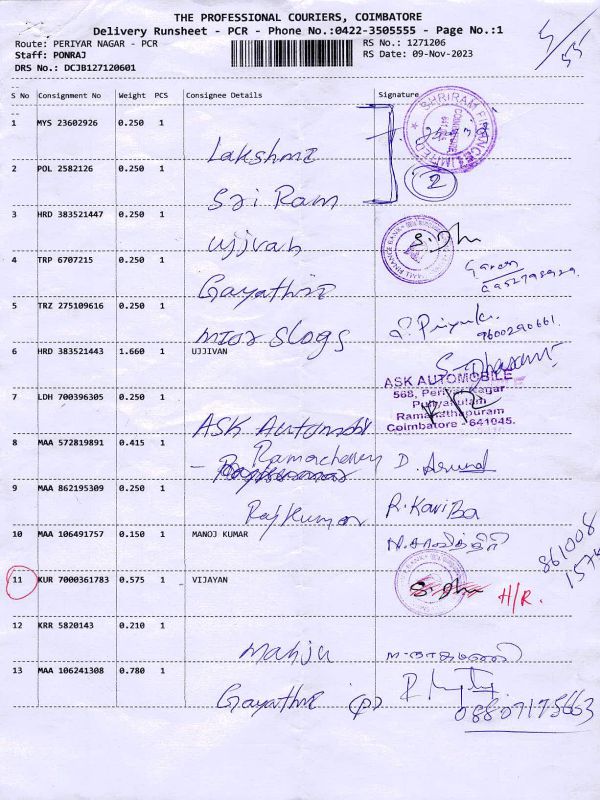 THE PROFESSIONAL COURIERS, COIMBATORE
Delivery Runsheet - PCR - Phone No.:0422-3505555 - Page No.:1
Route: PERIYAR NAGAR - PCR
RS No.: 1271206
Staff: PONRAJ
RS Date: 09-Nov-2023
DRS No.: DCJB127120601
S No Consignment No Weight PCS Consignee Details Signature
1 MYS 23602926 0.250 1
Lakshmi
SHRIRAM FINANCE LIMITED
2 POL 2582126 0.250 1
Sri Ram
2
3 HRD 383521447 0.250 1
Ujjivan
4 TRP 6707215 0.250 1
Gayathri
5 TRZ 275109616 0.250 1
S. Priyak
9600290661
6 HRD 383521443 1.660 1 UJJIVAN
7 LDH 700396305 0.250 1
ASK Automobi
ASK AUTOMOBILE
568, Periyar Nagar
Puliyakulam
Ramanathapuram
Coimbatore - 641045.
8 MAA 572819891 0.415 1
D. Arund
9 MAA 862195309 0.250 1
Rajkumar
R. Kaviba
10 MAA 106491757 0.150 1 MANOJ KUMAR
861008
1574
11 KUR 7000361783 0.575 1 VIJAYAN
H/R.
12 KRR 5820143 0.210 1
Manju
13 MAA 106241308 0.780 1
Gayathri (P)
08807175663